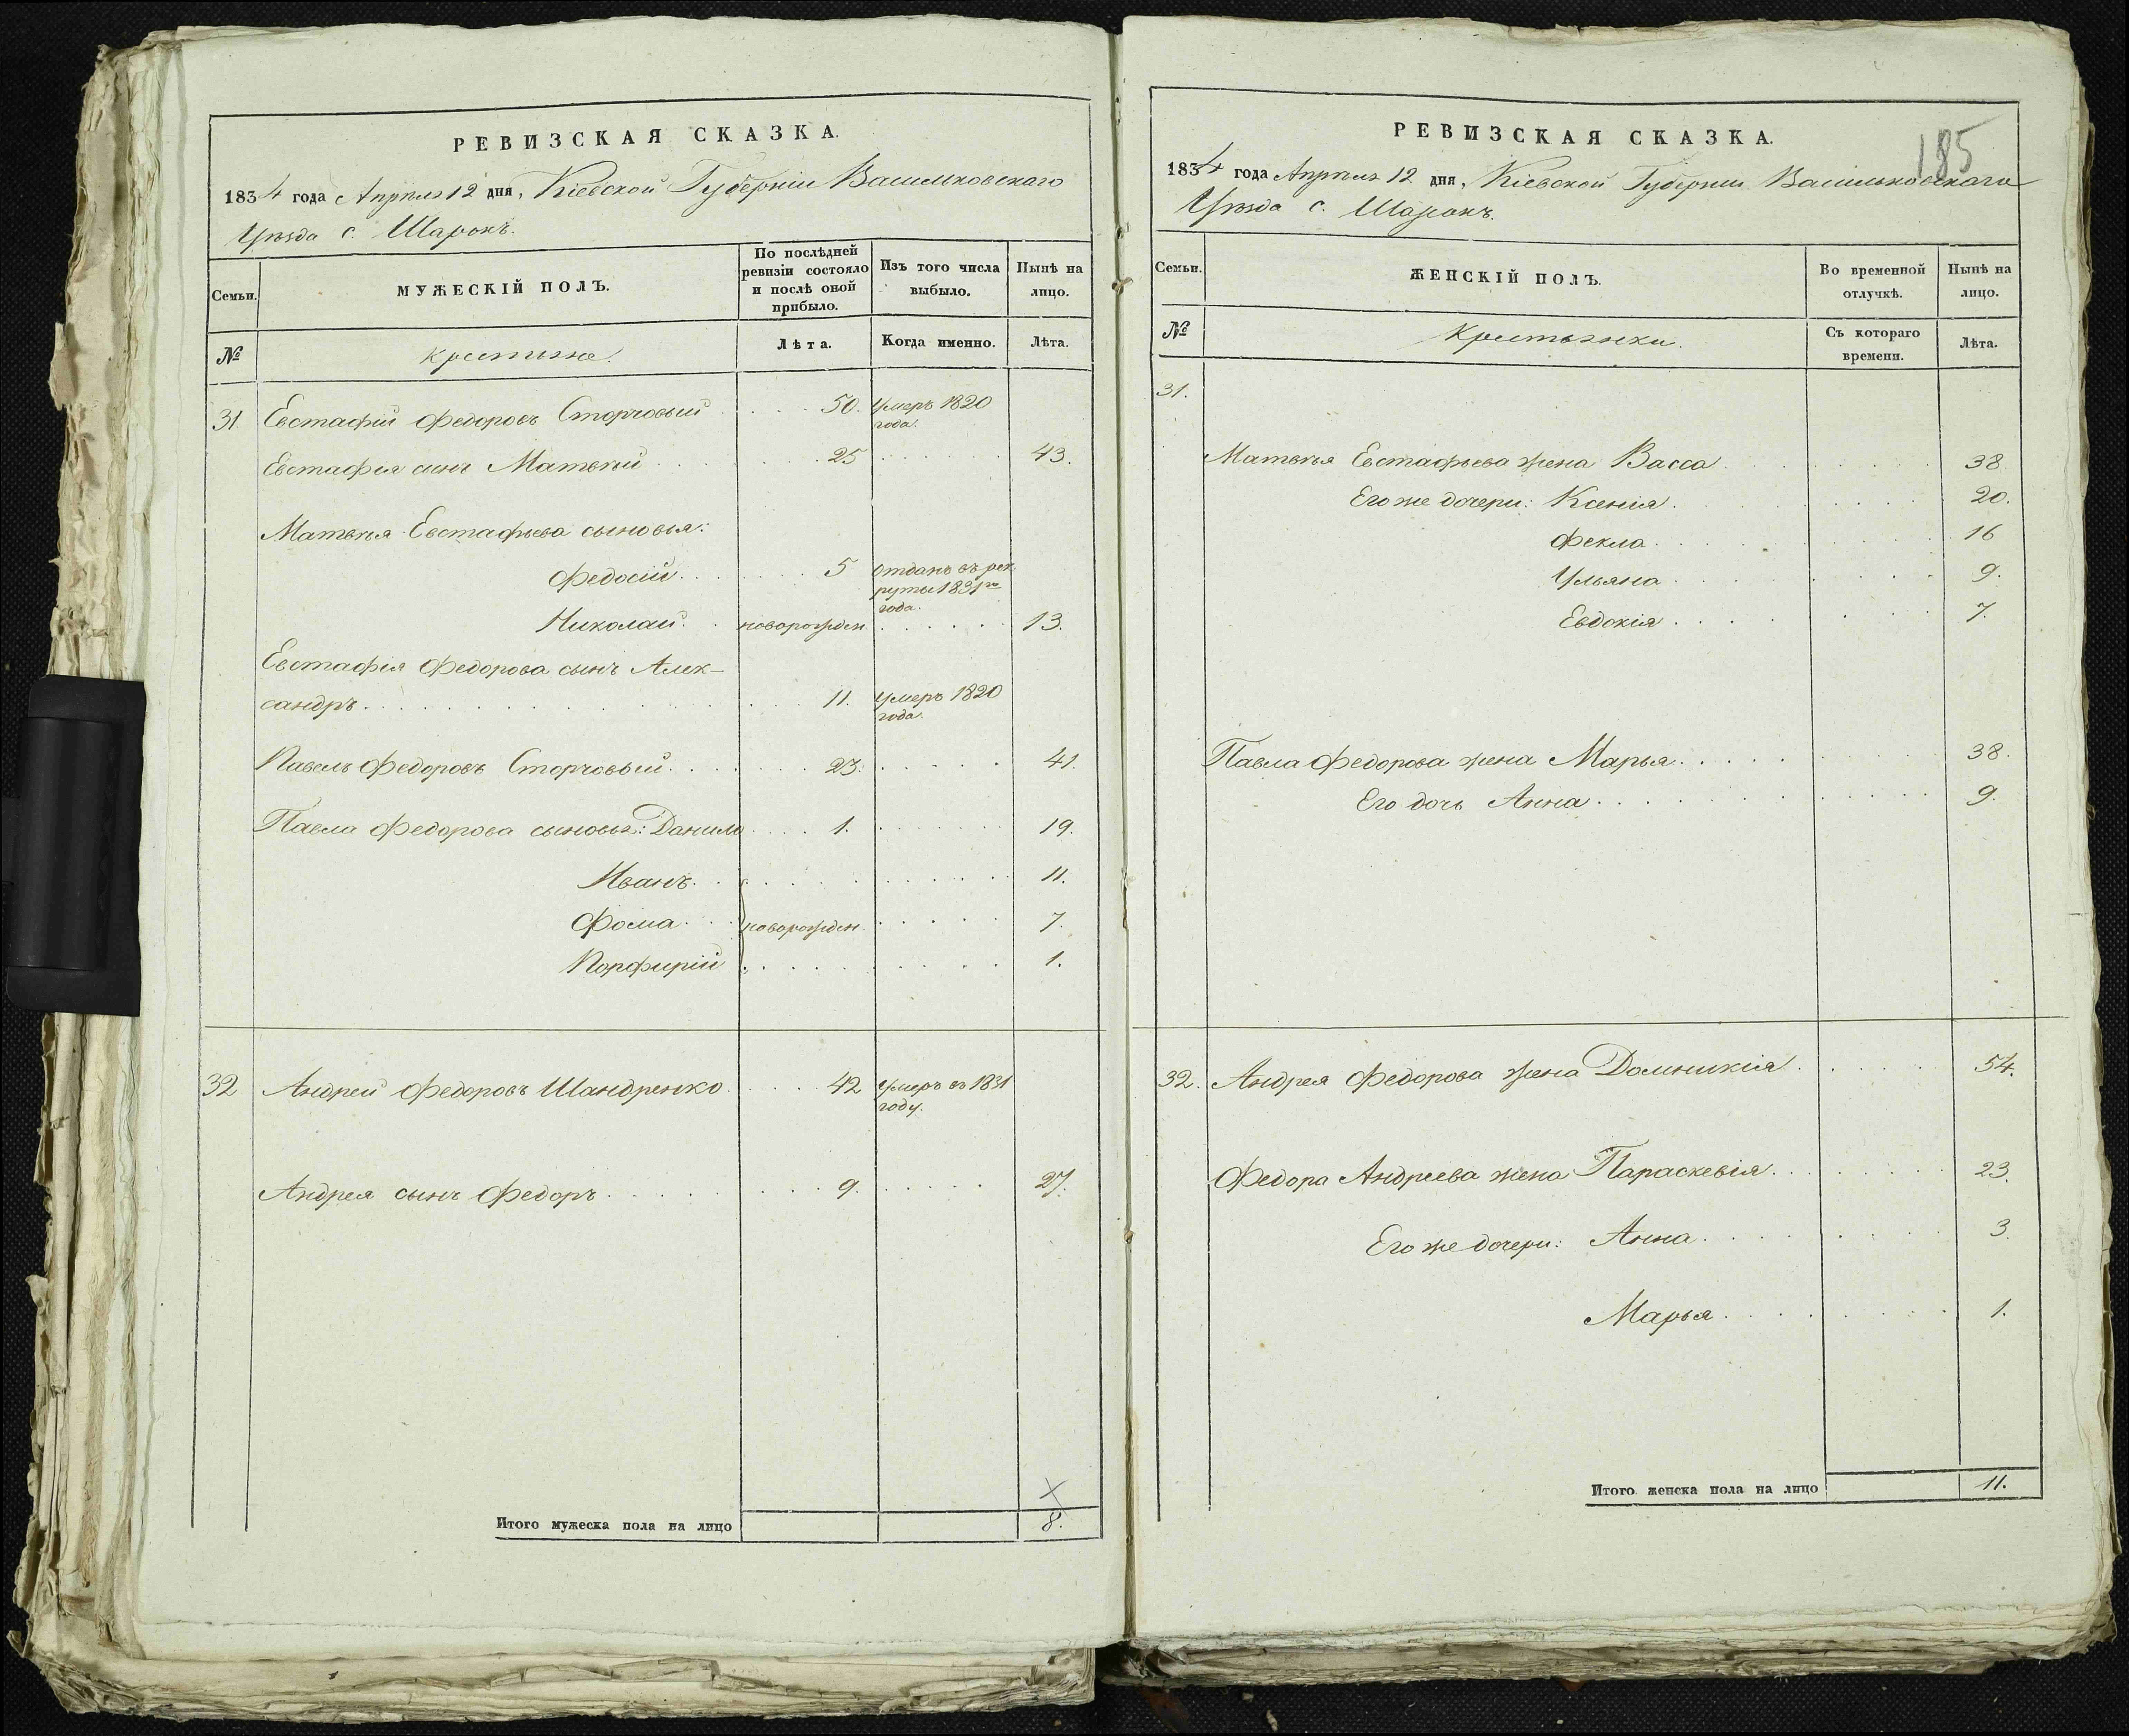 РЕВИЗСКАЯ СКАЗКА.
1834 года Апреля 12 дня, Кіевской Губерніи Васильковскаго
Уѣзда с. Шарокъ.
Семьи.
МУЖЕСКІЙ ПОЛЪ.
По послѣдней ревизіи состояло и послѣ оной прибыло.
Изъ того числа выбыло.
Нынѣ на лицо.
№
Крестьяне.
Лѣта.
Когда именно.
Лѣта.
31 Евстафій Федоровъ Сторчовый . . . 50. умеръ 1820
года.
Евстафія сынъ Матвѣй . . . 25 . . . 43.
Матвѣя Евстафьева сыновья:
Федосій . . . 5 отданъ въ рек
руты 1831го
года.
Николай . . новорожден. . . . 13.
Евстафія Федорова сынъ Алек-
сандръ . . . 11. умеръ 1820
года.
Павелъ Федоровъ Сторчовый . . . 23. . . . 41.
Павла Федорова сыновья: Данило . . . 1. . . . 19.
Иванъ . . . 11.
Фома . . . новорожден. . . . 7.
Порфирій . . . 1.
32 Андрей Федоровъ Шандренко . . . 42 умеръ въ 1831
году.
Андрея сынъ Федоръ . . . 9. . . . 27.
Итого мужеска пола на лицо 8.
185
РЕВИЗСКАЯ СКАЗКА.
1834 года Апреля 12 дня, Кіевской Губерніи Васильковскаго
Уѣзда с. Шарокъ.
Семьи.
ЖЕНСКІЙ ПОЛЪ.
Во временной отлучкѣ.
Нынѣ на лицо.
№
Крестьянки.
Съ котораго времени.
Лѣта.
31.
Матвѣя Евстафьева жена Васса . . . 38
Его же дочери: Ксенія . . . 20.
Фекла . . . 16
Ульяна . . . 9.
Евдокія . . . 7.
Павла Федорова жена Марья . . . 38.
Его дочь Анна . . . 9.
32. Андрея Федорова жена Домникія . . . 54.
Федора Андреева жена Параскевія . . . 23.
Его же дочери: Анна . . . 3.
Марья . . . 1.
Итого женска пола на лицо 11.